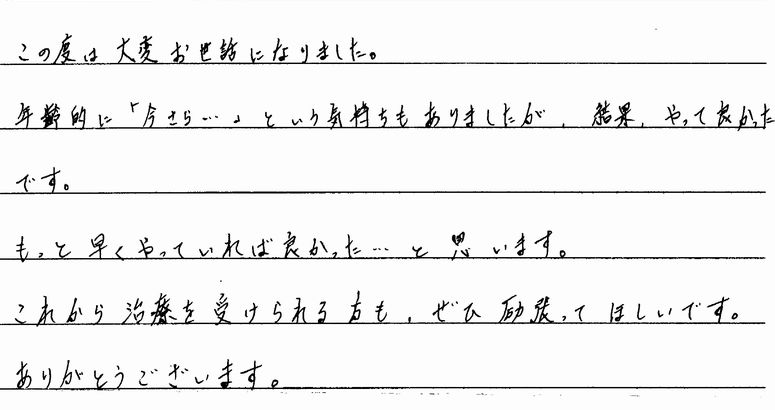 この度は大変お世話になりました。
年齢的に「今さら…」という気持ちもありましたが、結果、やって良かった
です。
もっと早くやっていれば良かった…と思います。
これから治療を受けられる方も、ぜひ励張ってほしいです。
ありがとうございます。